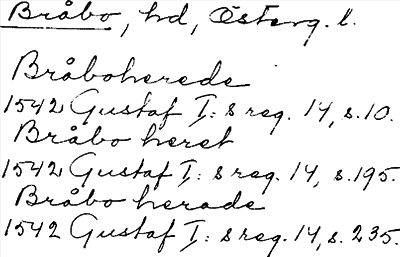 Bråbo, hd, Österg. l.
Bråboherede
1542 Gustaf I: s reg. 14, s. 10.
Bråbo heret
1542 Gustaf I: s reg. 14, s. 195.
Bråbo herade
1542 Gustaf I: s reg. 14, s. 235.